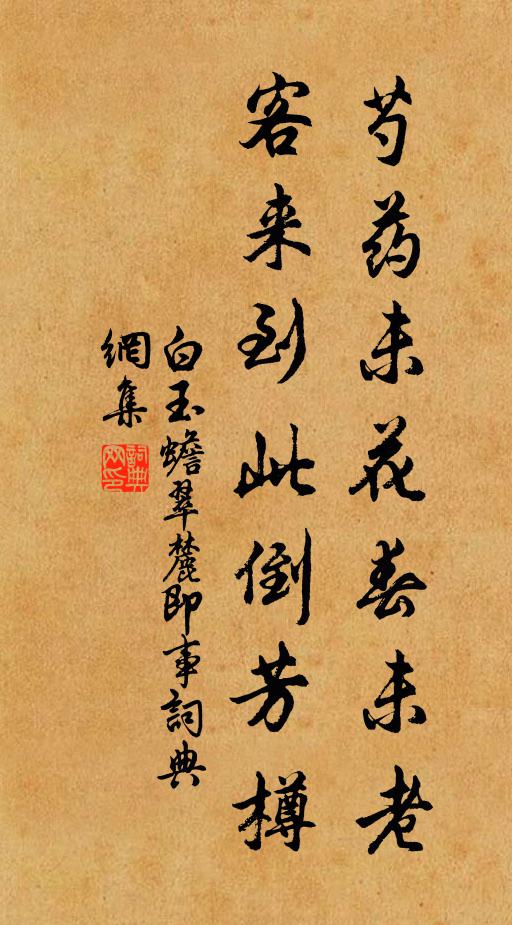 芍药未花春未老
客来到此倒芳樽
白玉蟾翠麓即事詞典
網集
詞典
网印